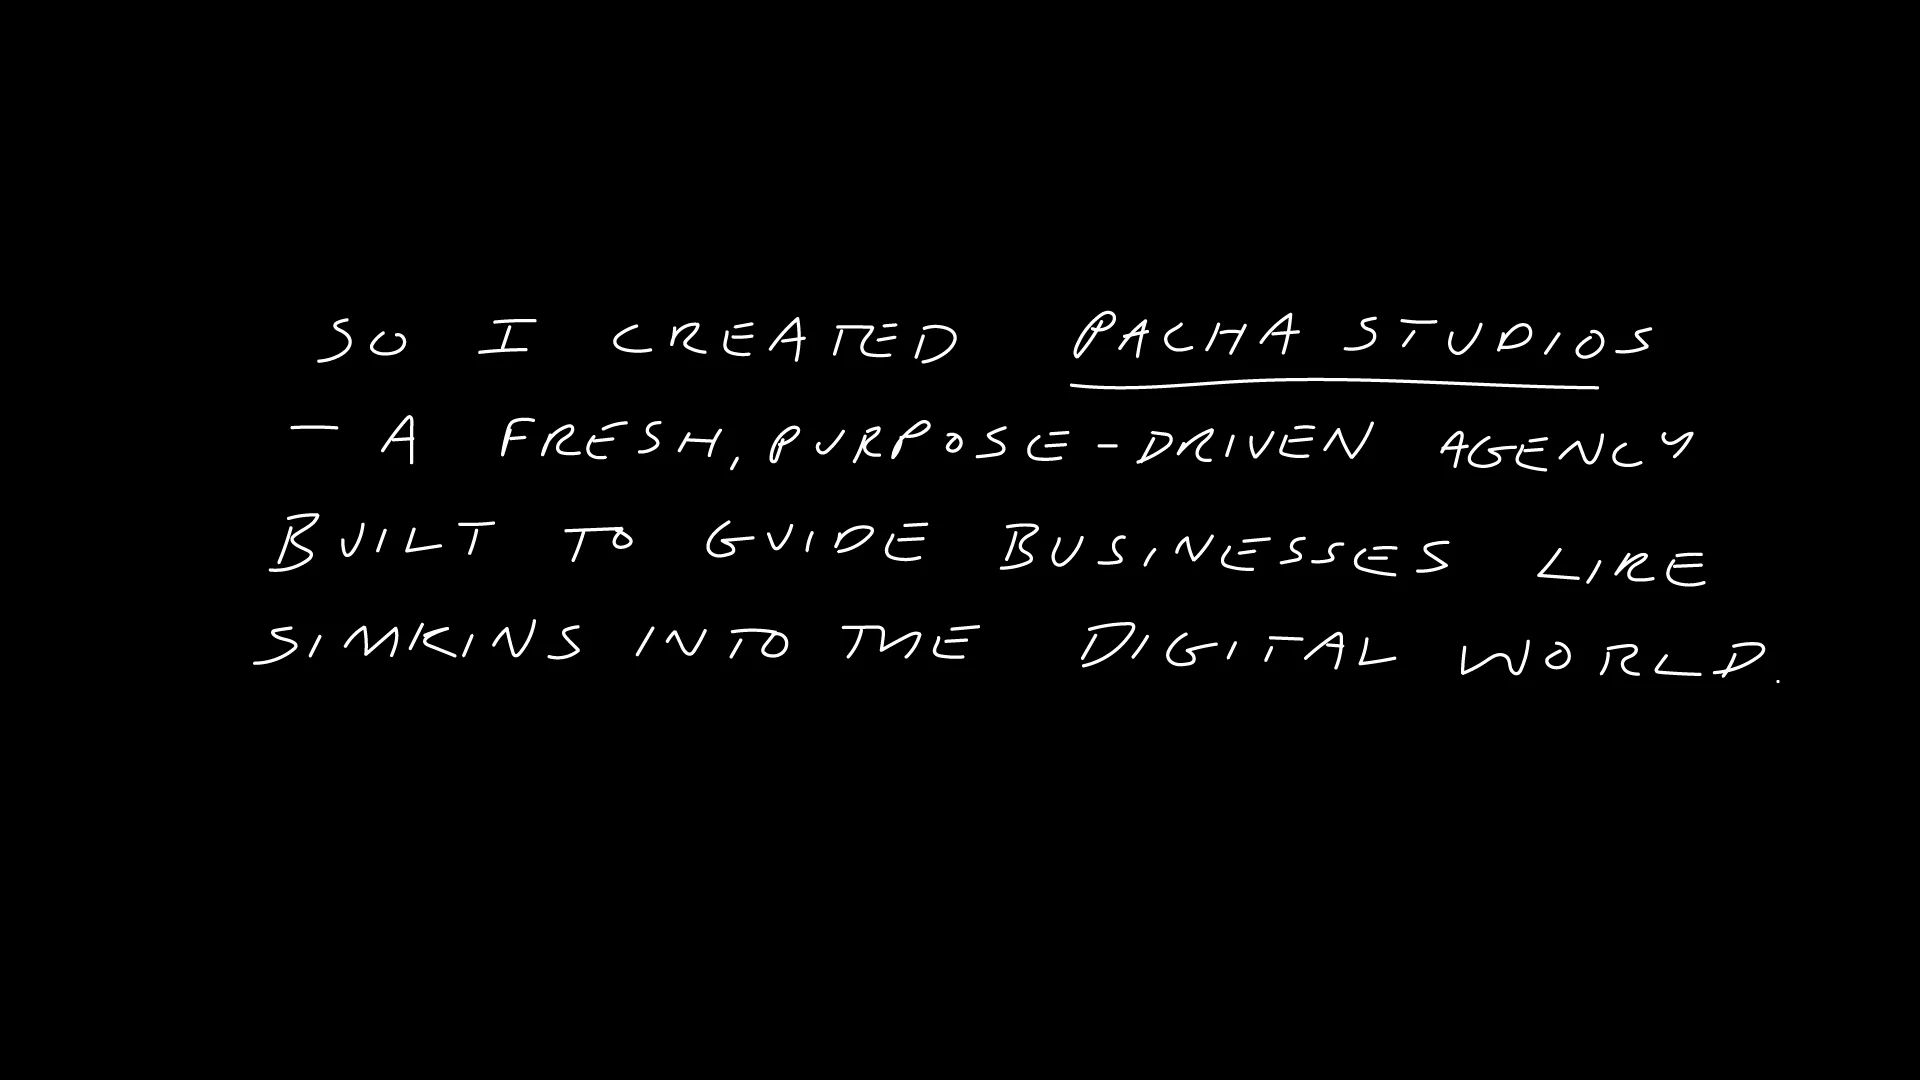 SO I CREATED PACHA STUDIOS
- A FRESH, PURPOSE-DRIVEN AGENCY
BUILT TO GUIDE BUSINESSES LIKE
SIMKINS INTO THE DIGITAL WORLD.